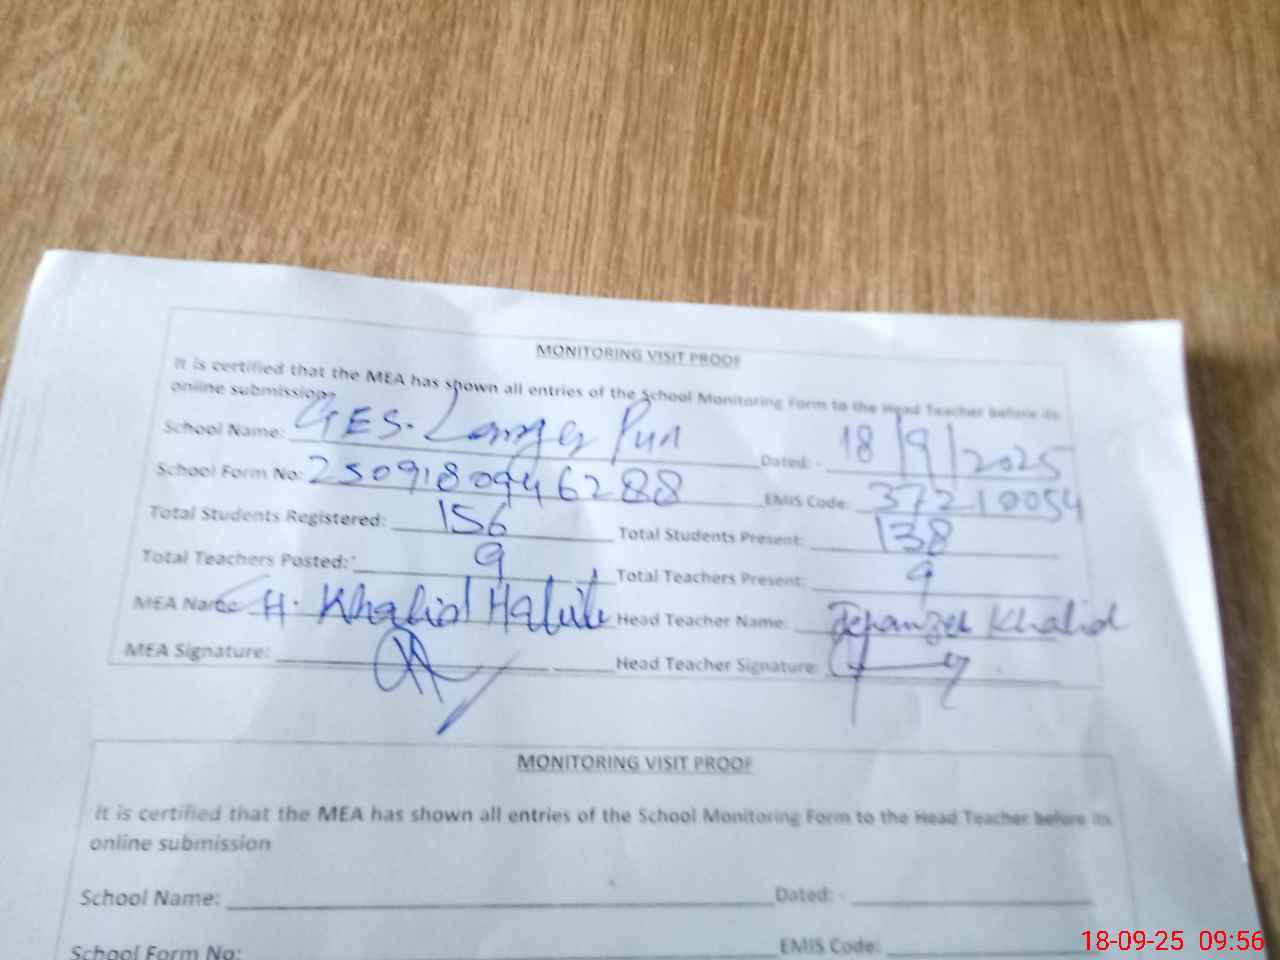 MONITORING VISIT PROOF
It is certified that the MEA has shown all entries of the School Monitoring Form to the Head Teacher before its
online submission
School Name: GES. Langer Pur Dated: - 18/9/2025
School Form No: 2509180946288 EMIS Code: 37210054
Total Students Registered: 156 Total Students Present: 138
Total Teachers Posted: 9 Total Teachers Present: 9
MEA Name: CH. Khalid Habib Head Teacher Name: Jehanzeb Khalid
MEA Signature: Head Teacher Signature:
MONITORING VISIT PROOF
It is certified that the MEA has shown all entries of the School Monitoring Form to the Head Teacher before its
online submission
School Name: Dated: -
School Form No: EMIS Code:
18-09-25 09:56